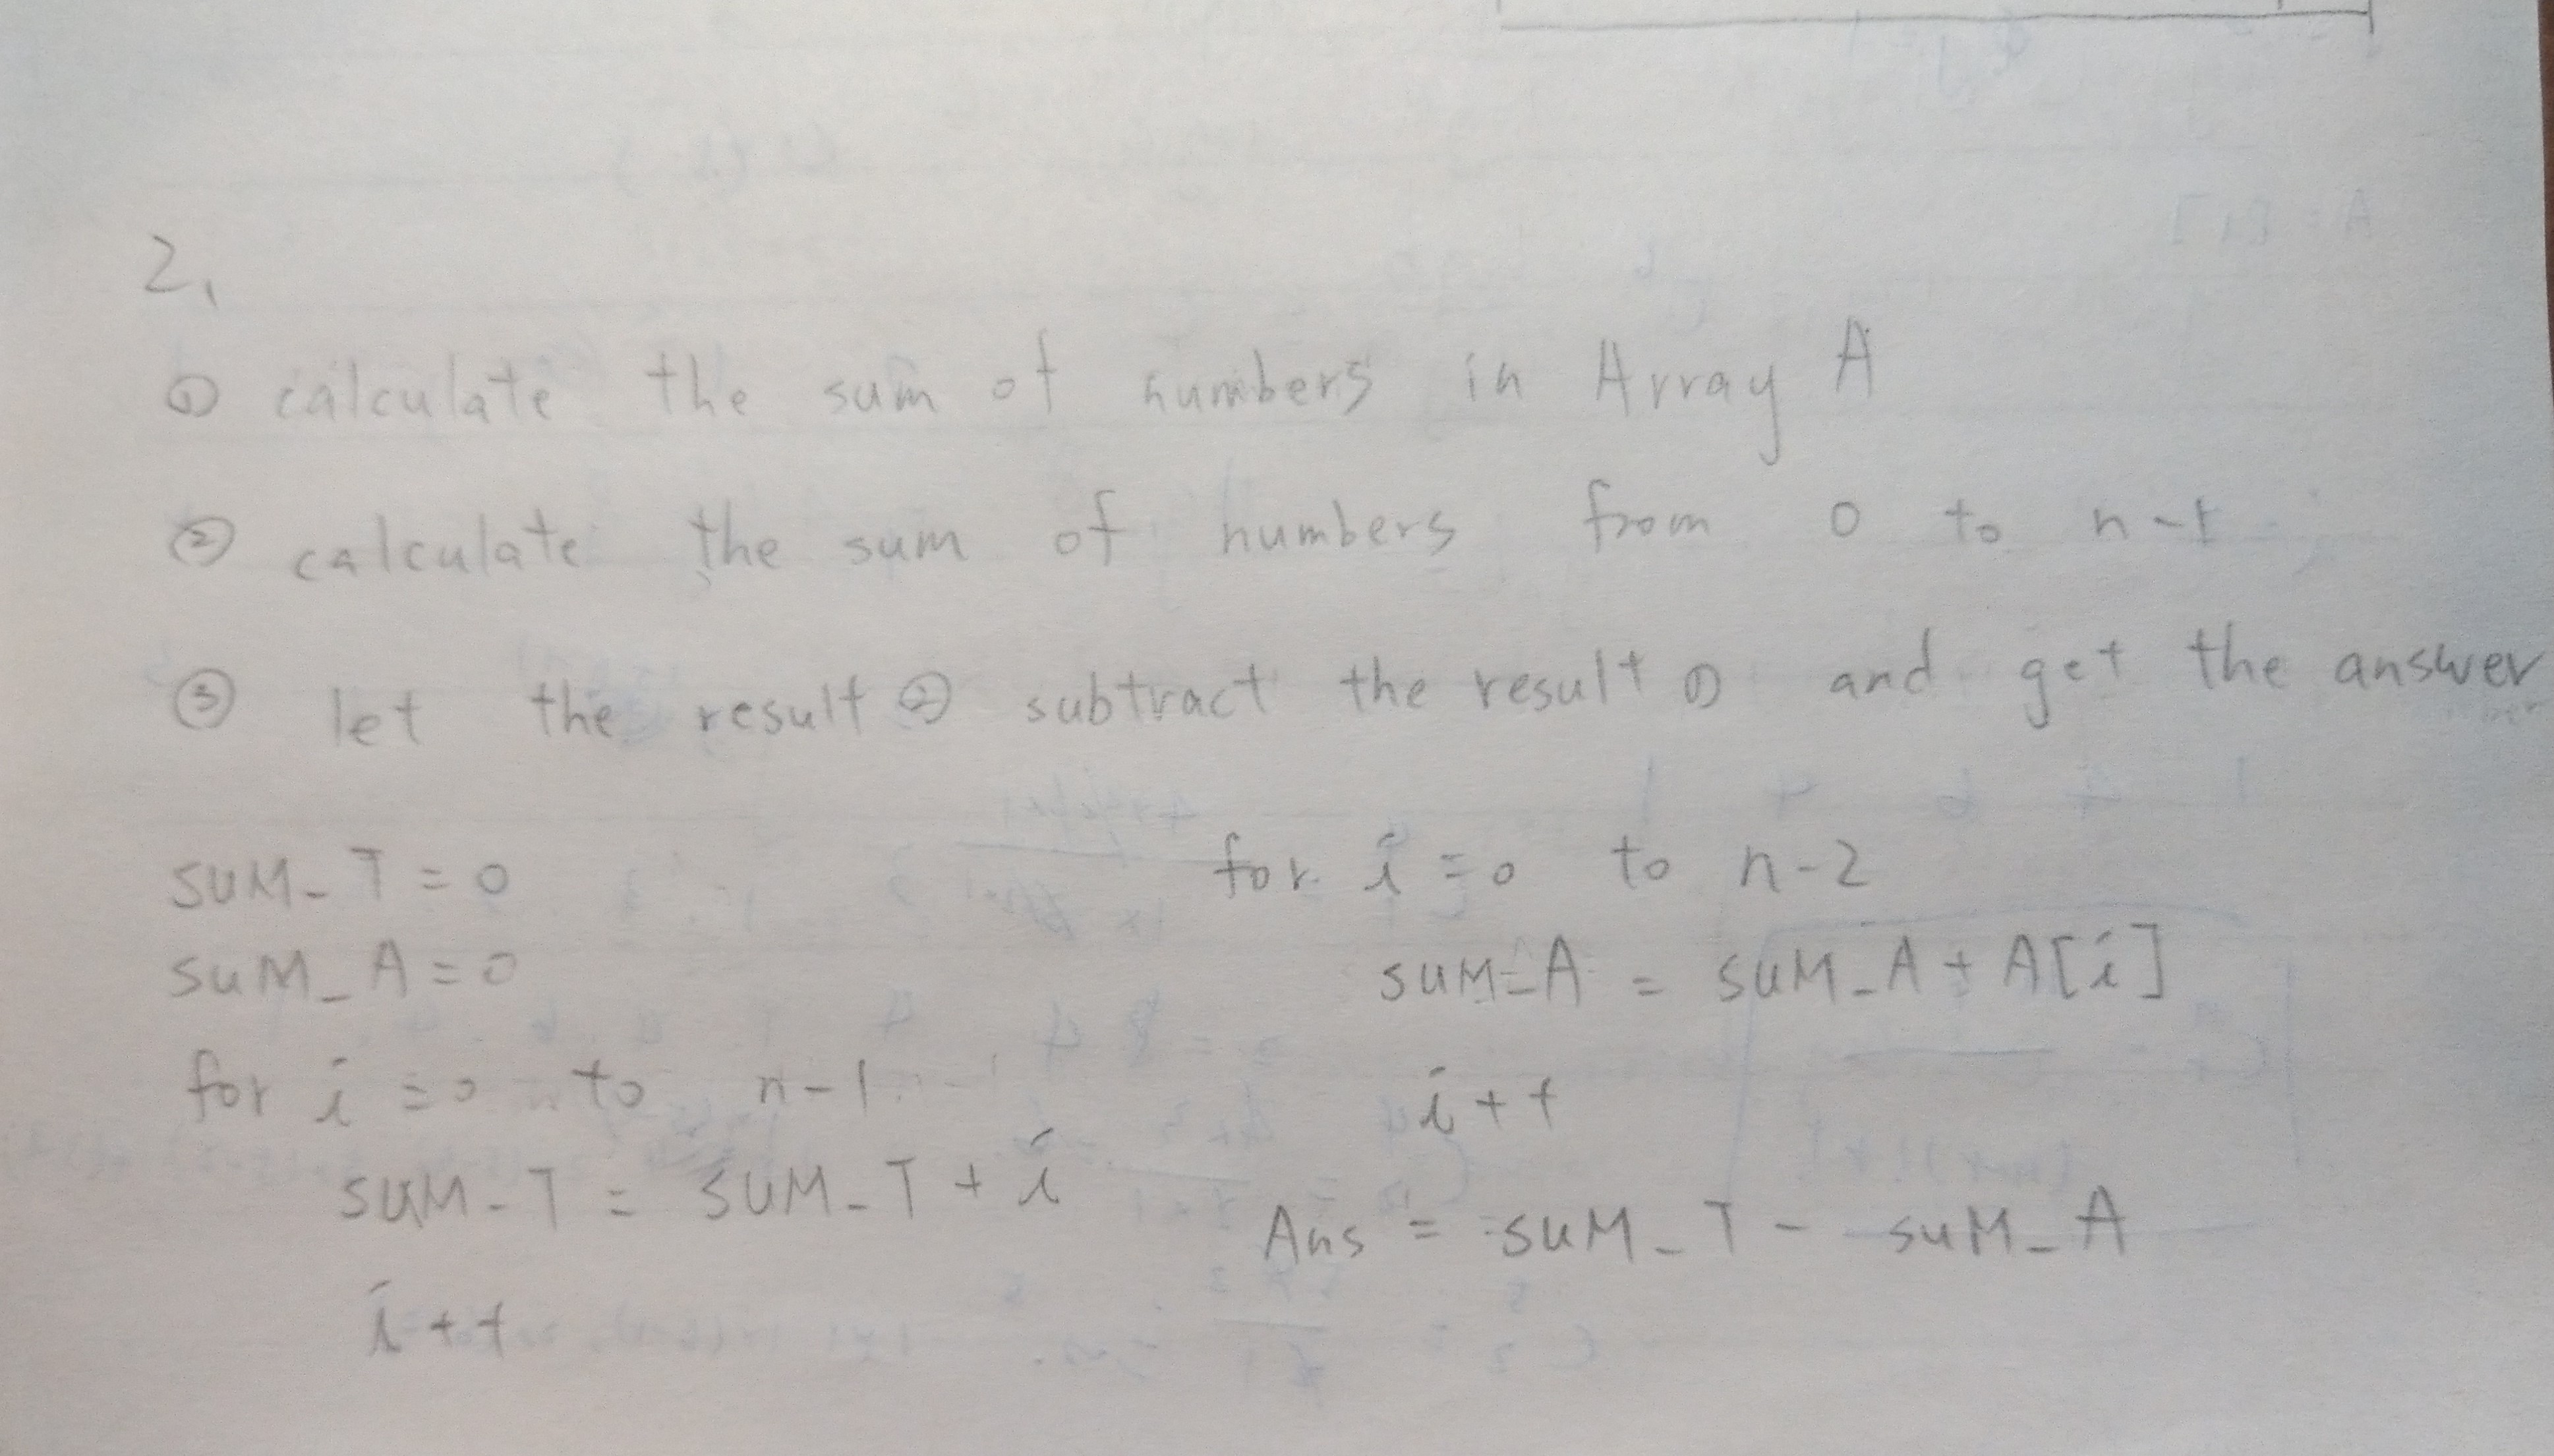 2.
① calculate the sum of numbers in Array A
② calculate the sum of numbers from 0 to n-1
③ let the result ② subtract the result ① and get the answer
SUM_T = 0
SUM_A = 0
for i = 0 to n-1
SUM_T = SUM_T + i
i++
for i = 0 to n-2
SUM_A = SUM_A + A[i]
i++
Ans = SUM_T - SUM_A